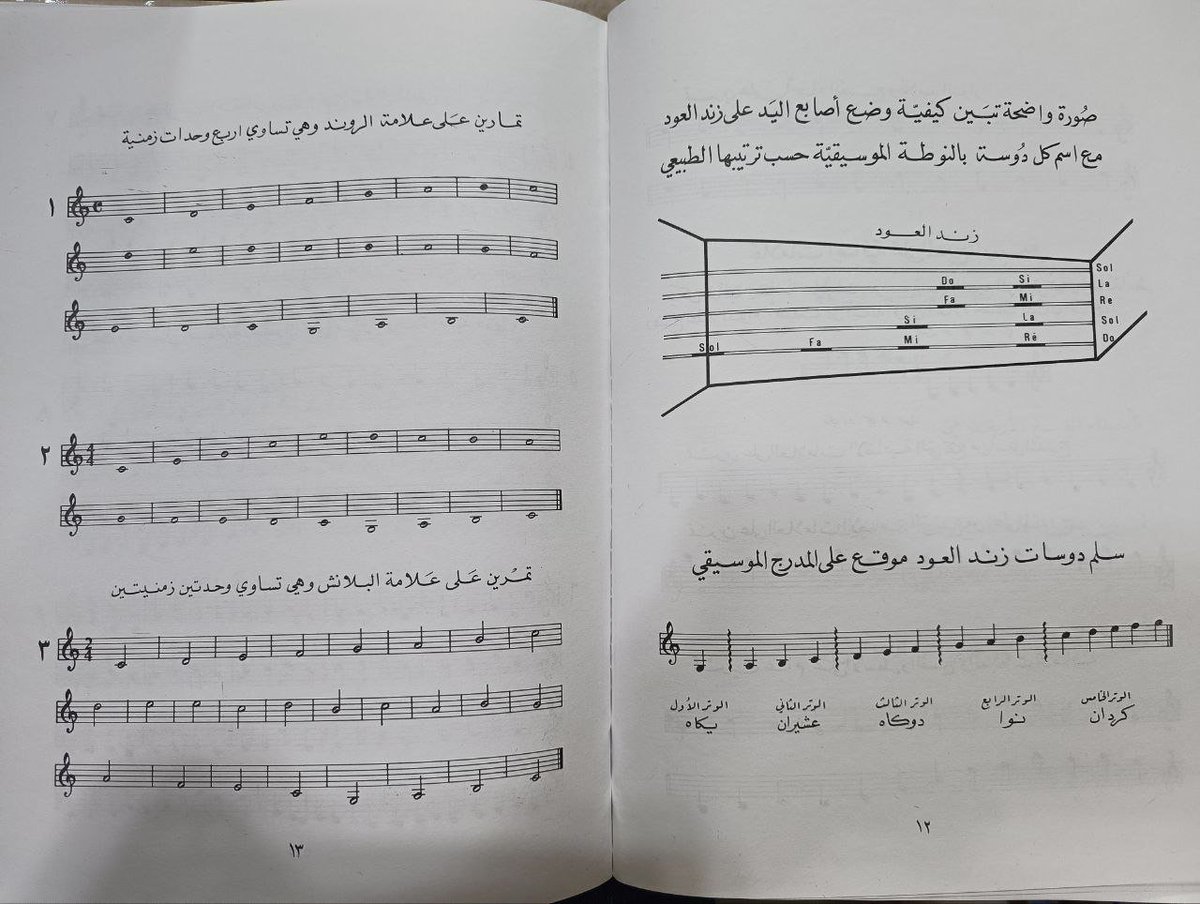 صُورة واضحة تبَين كيفيّة وضع أصابع اليَد على زند العود
مع اسم كل دُوسة بالنوطة الموسيقيّة حسب ترتيبها الطبيعي
زند العود
Sol
Do Si La
Fa Mi Re
Si La Sol
Sol Fa Mi Ré Do
سلم دوسات زند العود موقع على المدرج الموسيقي
الوتر الأول الوتر الثاني الوتر الثالث الوتر الرابع الوتر الخامس
يكاه عشيران دوكاه نوا كردان
١٢
تمارين عَلى علامة الروند وهي تساوي اربع وحدات زمنية
١
C
٢
4
4
تمرين عَلى عَلامة البلانش وهي تساوي وحدتين زمنيتين
٣
2
4
١٣